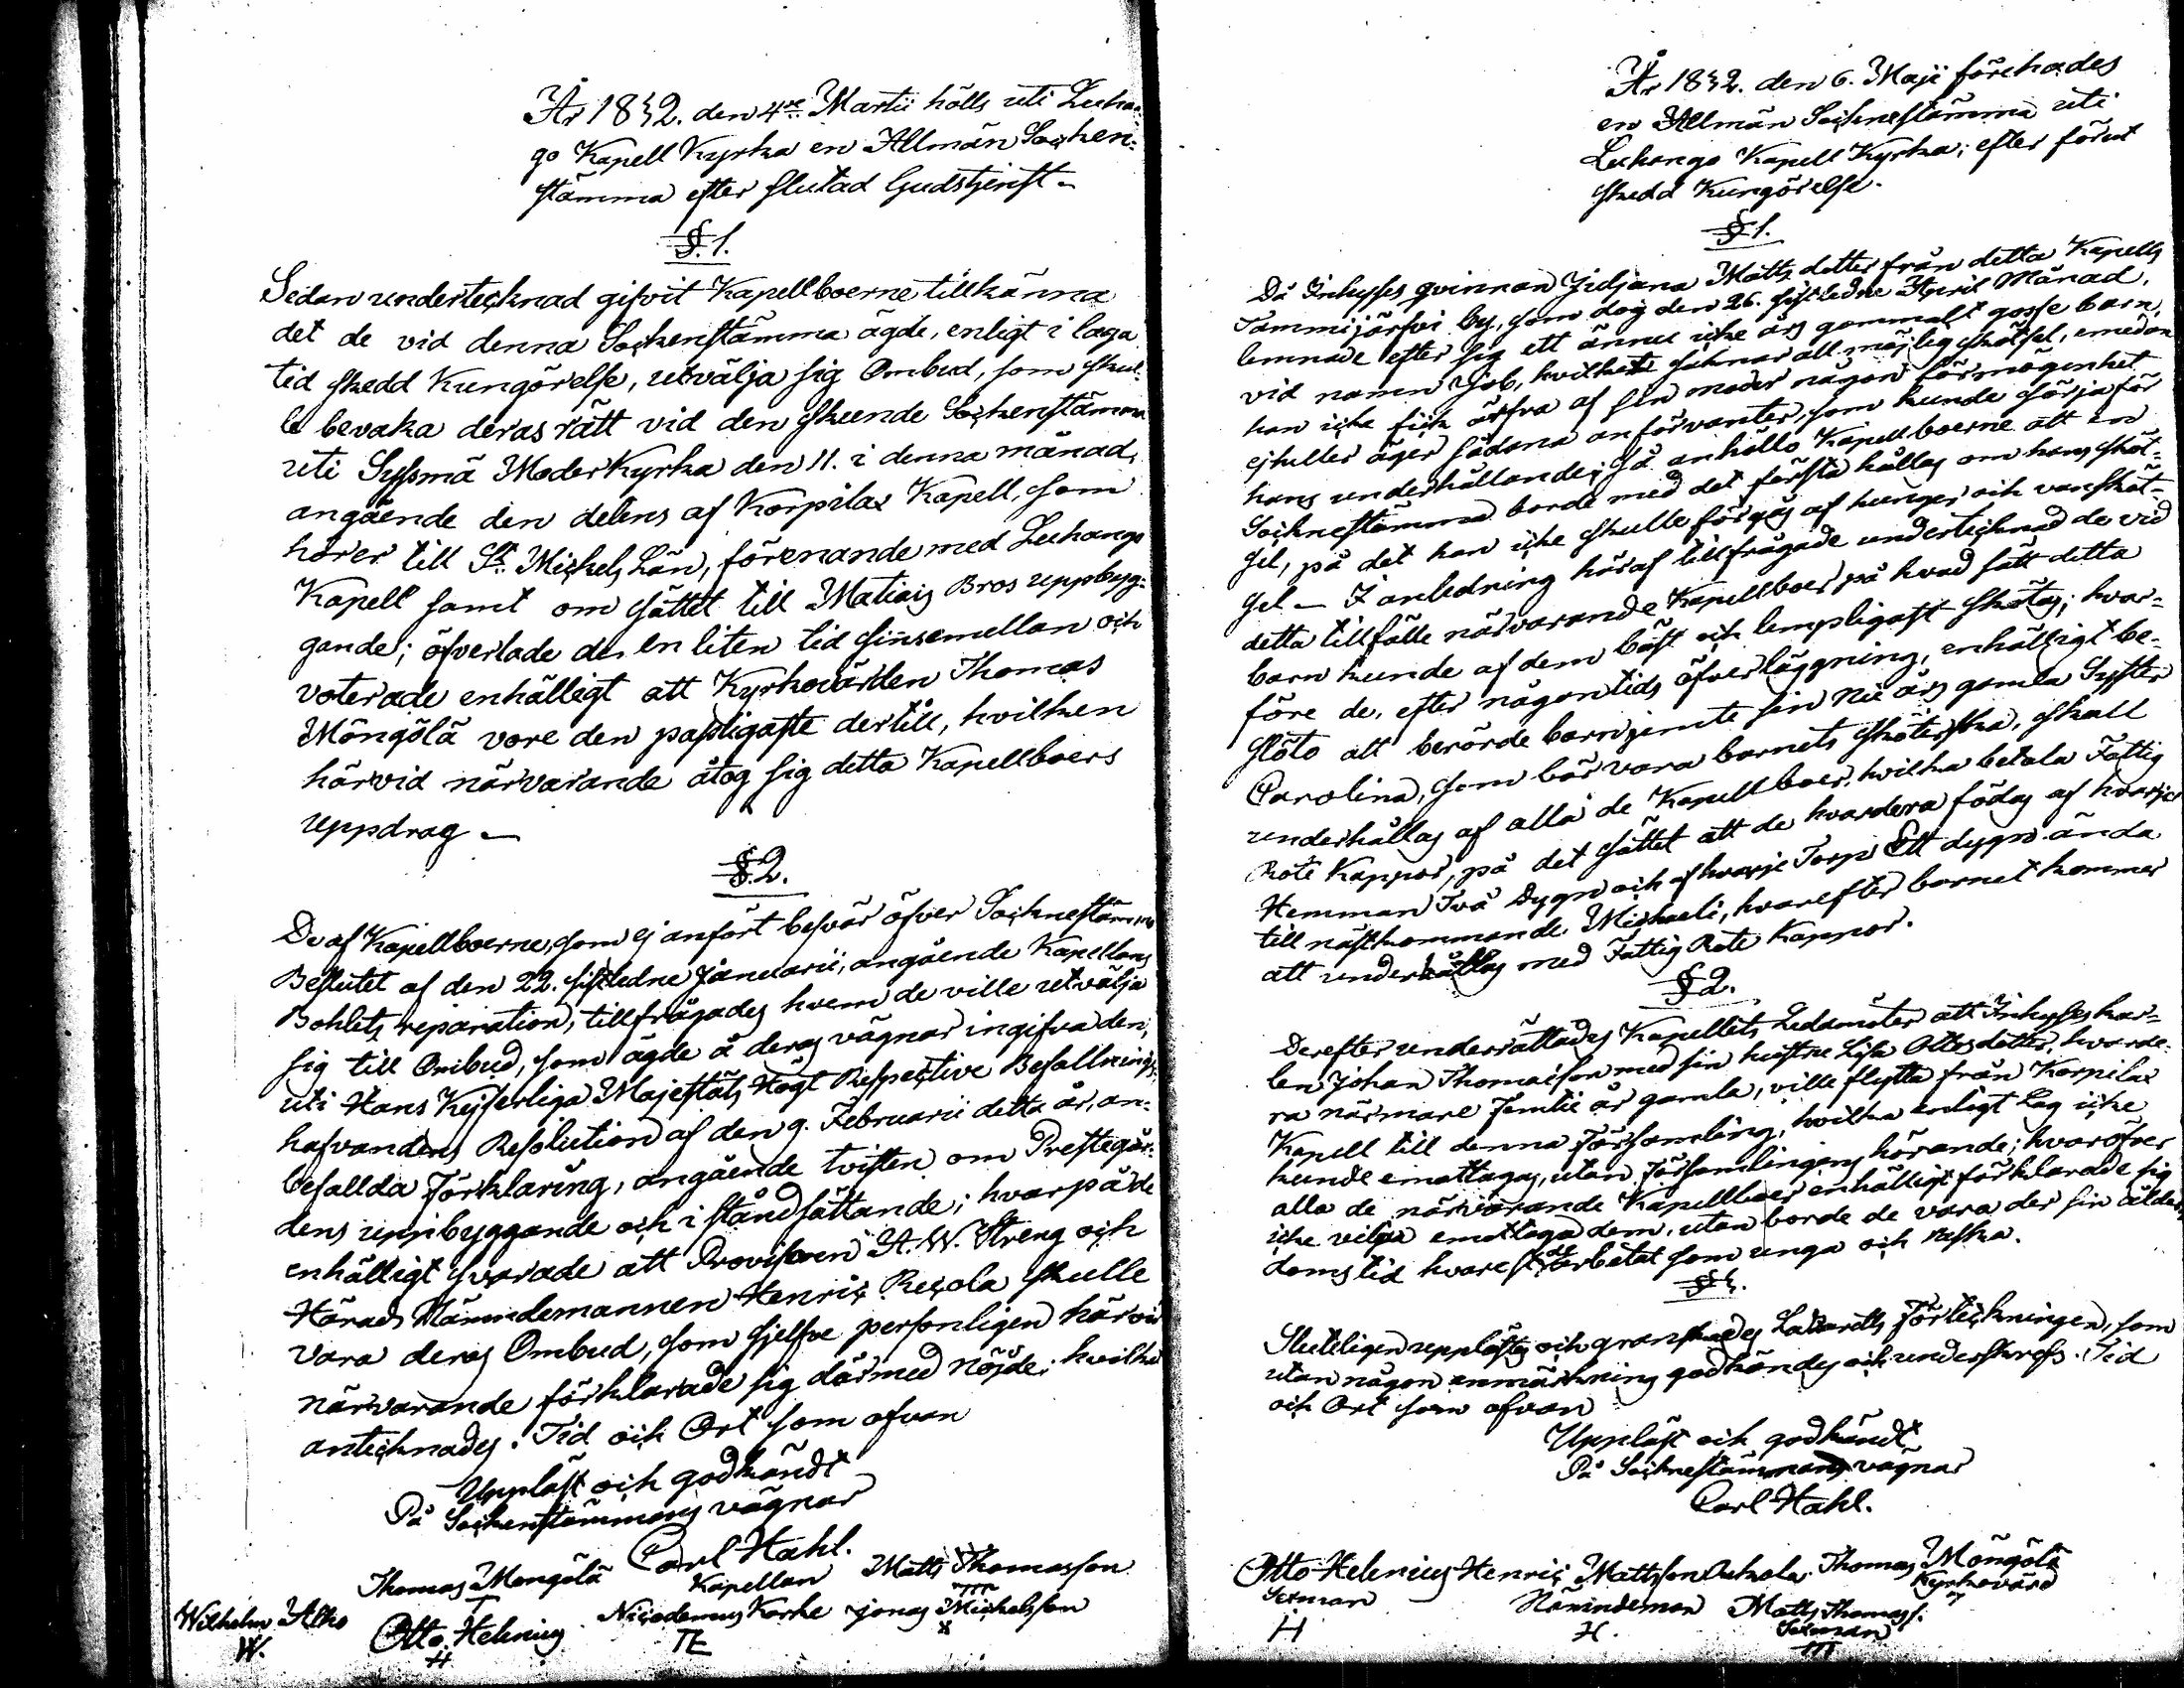 År 1832. den 4de Martii hölls uti Luhan-
go Kapell Kyrka en Allmän Socken-
stämma efter slutad Gudstjenst -
§. 1.
Sedan undertecknad gifvit Kapellboerne tillkänna
det de vid denna Sockenstämma ägde, enligt i laga
tid skedd Kungörelse, utvälja sig Ombud, som skul-
le bevaka deras rätt vid den skeende Sockenstämma
uti Sysmä Moder Kyrka den 11. i denna månad,
angående den delens af Korpilax Kapell, som
hörer till S:t Michels Län, förenande med Luhango
Kapell samt om sättet till Matiais Bros uppbyg-
gande; öfverlade de en liten tid sinsemellan och
voterade enhälligt att Kyrkovärden Thomas
Möngölä vore den passligaste dertill, hvilken
härvid närvarande åtog sig detta Kapellboers
uppdrag -
§. 2.
De af Kapellboerne, som ej anfört besvär öfver Sockenstämmo
Beslutet af den 22. sistledne Januarii, angående Kapellans
Bohlets reparation, tillfrågades hvem de ville utvälja
sig till Ombud, som ägde å deras vägnar ingifva den,
uti Hans Kejserliga Majestäts Högt Respective Befallnings-
hafvandens Resolution af den 9. Februarii detta år, an-
befallda Förklaring, angående tvisten om Prestegår-
dens uppbyggande och i ståndsättande; hvarpå de
enhälligt svarade att Provisoren A. W. Streng och
Härads Nämndemannen Henric Reçola skulle
vara deras Ombud, som sjelfve personligen härvid
närvarande förklarade sig därmed nöjde; hvilket
antecknades. Tid och Ort som ofvan
Uppläst och godkändt
På Sockenstämmans vägnar
Carl Hahl.
Kapellan
Thomas Mongölä
Matts Thomasson
Wilhelm Alho
W.
Otto Helenius
H
Nicodemus Korhe
TE
Jonas Michelsson
X
År 1832. den 6. Maji förehades
en Allmän Socknestämma uti
Luhango Kapell Kyrka; efter förut
skedd Kungörelse.
§ 1.
Då Inhyses qvinnan Juljana Matts dotter från detta Kapells
Tammijärfvi by, som dog den 26. sistledne April Månad,
lemnade efter sig ett ännu icke års gammalt gosse barn,
vid namn Job, hvilket saknar all möjlig skötsel, emedan
han icke fick ärfva af sin moder någon förmögenhet
ejheller äger sådana anförvanter, som kunde sörja för
hans underhållande; så anhöllo Kapellboerne att en
Socknestämma borde med det första hållas om hans sköt-
sel, på det han icke skulle förgås af hunger och vanskött-
sel. - I anledning häraf tillfrågade undertecknad de vid
detta tillfälle närvarande Kapellboer på hvad sätt detta
barn kunde af dem bäst och lempligast skötas; hvar-
före de, efter någontids öfverläggning, enhälligt be-
slöto att berörde barn jemte sin nie års gamla Syster
Carolina, som bör vara barnets sköterska, skall
underhållas af alla de Kapellboer, hvilka betala Fattig
Rote Kappor, på det sättet att de hvardera födas af hvarje
Hemman Två Dygn och af hvarje Torp Ett dygn ända
till nästkommande Michaeli, hvarefter barnet kommer
att underhållas med Fattig Rote Kappor.
§ 2.
Derefter underrättades Kapellets Ledamöter att Inhyses kar-
len Johan Thomasson med sin hustru Lisa Ottosdotter, hvarde-
ra närmare femtie år gamla, ville flytta från Korpilax
Kapell till denna Församling, hvilka enligt Lag icke
kunde emottagas, utan Församlingens hörande; hvaröfver
alla de närvarande Kapellboer enhälligt förklarade sig
icke vilja emottaga dem, utan borde de vara der sin ålder-
doms tid hvarest de arbetat som unga och raska.
§ 3.
Sluteligen upplästes och granskades Lazaretts Förteckningen, som
utan någon anmärkning godkändes och underskrefs. Tid
och Ort som ofvan
Uppläst och godkändt
På Socknestämmans vägnar
Carl Hahl.
Otto Helenius
Sexman
H
Henric Mattsson
Nämndeman
H.
Thomas Möngölä
Kyrkovärd
Matts Thomass.
Sexman